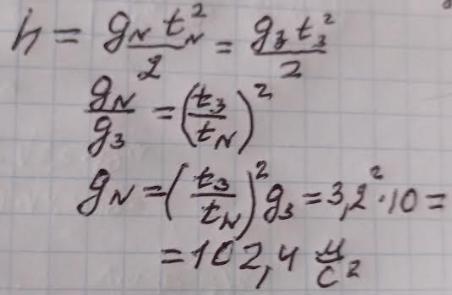 h = g_N t_N² / 2 = g_З t_З² / 2
g_N / g_З = (t_З / t_N)²
g_N = (t_З / t_N)² g_З = 3,2² · 10 =
= 102,4 м/с²